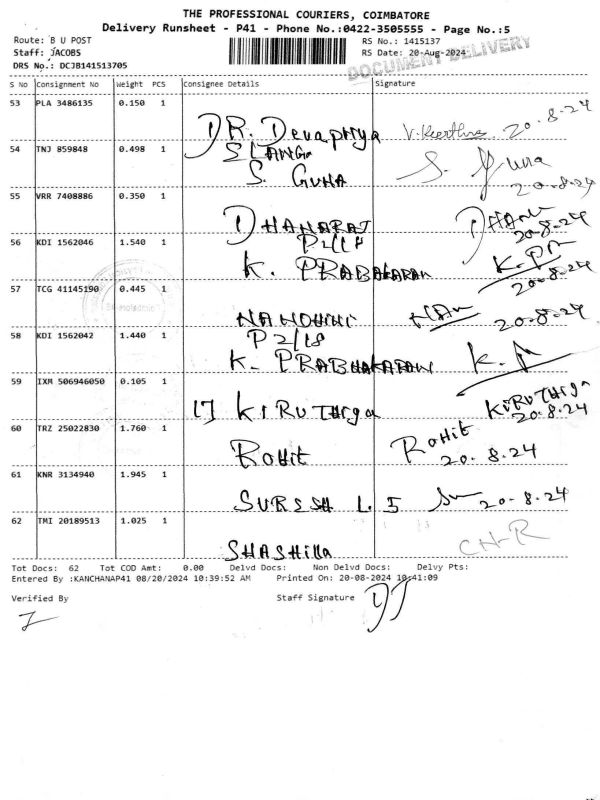 THE PROFESSIONAL COURIERS, COIMBATORE
Delivery Runsheet - P41 - Phone No.:0422-3505555 - Page No.:5
Route: B U POST
RS No.: 1415137
Staff: JACOBS
RS Date: 20-Aug-2024
DRS No.: DCJB141513705
DOCUMENT DELIVERY
S No Consignment No Weight PCS Consignee Details Signature
53 PLA 3486135 0.150 1
DR. Devapriya V. Keerthna 20-8-24
54 TNJ 859848 0.498 1
S. GUHA S. Guha
20-8-24
55 VRR 7408886 0.350 1
DHANARAJ DHAN
20-8-24
56 KDI 1562046 1.540 1
P2/18
K. PRABAKARAN K. PR
20-8-24
57 TCG 41145190 0.445 1
NANDHINI 20-8-24
58 KDI 1562042 1.440 1
P2/18
K. PRABHAKARAN
59 IXM 506946050 0.105 1
17 KIRUTHIga KIRUTHIga
20-8-24
60 TRZ 25022830 1.760 1
ROHit ROHit
20-8-24
61 KNR 3134940 1.945 1
SURESH L. 5 20-8-24
62 TMI 20189513 1.025 1
SHASHIKa
Tot Docs: 62 Tot COD Amt: 0.00 Delvd Docs: Non Delvd Docs: Delvy Pts:
Entered By :KANCHANAP41 08/20/2024 10:39:52 AM Printed On: 20-08-2024 10:41:09
Verified By Staff Signature